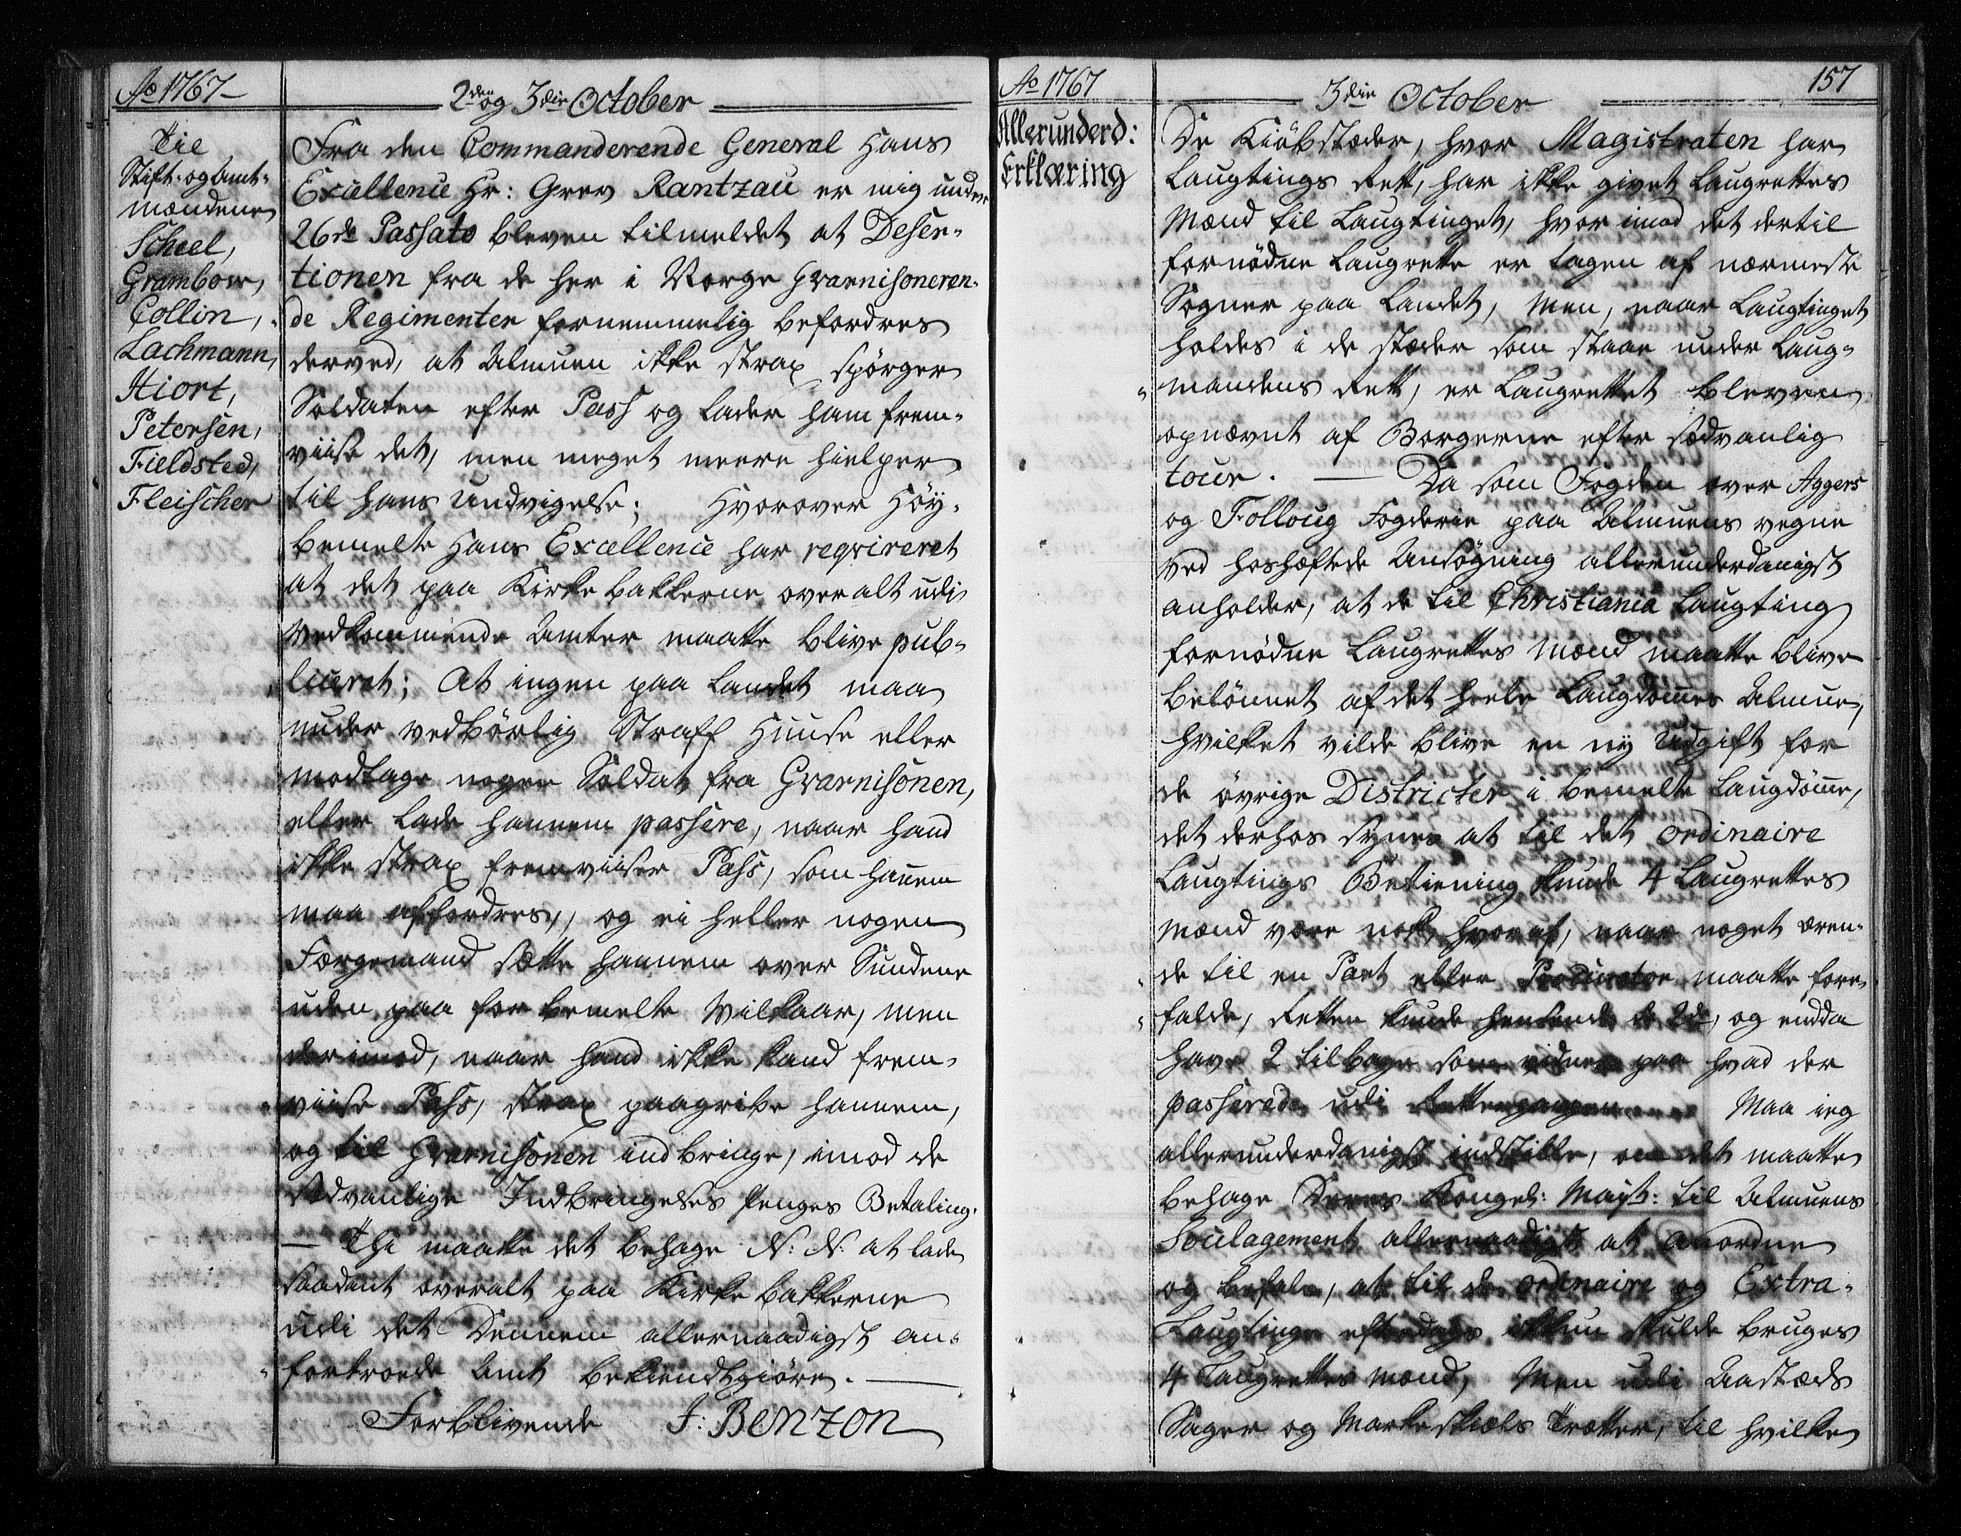 Ao 1767
2den og 3die October
Til
Stift- og Amt-
mændene
Scheel,
Grambow,
Collin,
Lachmann,
Hiort,
Petersen,
Fieldsted,
Fleischer
Fra den Commanderende General Hans
Excellence Hr: Grev Rantzau er mig under
26de Passato bleven tilmeldet at Deser-
tionen fra de her i Norge Gvarnisoneren-
de Regimenter fornemmelig befordres
derved, at Almuen ikke strax spörger
Soldaten efter Pass og lader ham frem-
viise det, men meget meere hielper
til hans Undvigelse; Hvorover Höy-
bemelte Hans Excellence har reqvireret
at det paa Kirkebakkerne overalt udi
Vedkommende Amter maatte blive pub-
liceret; At ingen paa Landet maa
under vedbörlig Straff Huuse eller
modtage nogen Soldat fra Gvarnisonen,
eller lade hannem passere, naar hand
ikke strax fremviiser Pass, som hannem
maa affordres, og ei heller nogen
Færgemand sætte hannem over Sundene
uden paa forbemelte Vilkaar, men
derimod, naar hand ikke kand frem-
viise Pass, strax paagribe hannem,
og til Gvarnisonen indbringe, imod de
sædvanlige Indbringelses Penges Betaling.
Thi maatte det behage N: N: at lade
saadant overalt paa Kirkebakkerne
udi det Dennem allernaadigst an-
fortroede Amt bekiendtgiöre.
Forblivende J: Benzon
Ao 1767
3die October
157
Allerunderd:
Erklæring
De Kiöbstæder, hvor Magistraten har
Laugtings Rett, har ikke givet Laugrettes
Mænd til Laugtinget, hvor imod det dertil
fornödne Laugrette er tagen af nærmeste
Sogner paa Landet, Men, naar Laugtinget
holdes i de stæder som staar under Laug-
mandens Rett, er Laugrettet bleven
opnævnt af Borgerne efter sædvanlig
tour. Da som Fogden over Aggers
og Folloug Fogderie paa Almuens vegne
ved hoshæftede Ansögning allerunderdanigst
anholder, at de til Christiania Laugting
fornödne Laugrettes Mænd maatte blive
belönnet af det heele Laugdömmes Almue,
hvilket vilde blive en ny Udgift for
de övrige Districter i bemelte Laugdömme,
det derhos synes at til det ordinaire
Laugtings Betiening kunde 4 Laugrettes
Mænd være nok, hvoraf, naar noget æren-
de til en Part eller Procurator maatte fore-
falde, Retten kunde hensende de 2de, og endda
have 2 tilbage som vidner paa hvad der
passerede udi Rettergangen Maa ieg
allerunderdanigst indstille, om det maatte
behage Deres Kongel: Mayt: til Almuens
Soulagement allernaadigst at anordne
og befale, at til de ordinaire og Extra-
Laugtinge efterdags ikkun skulde bruges
4 Laugrettes Mænd, Men udi Aastæds
Sager og Markeskiæls Trætter, til hvilke